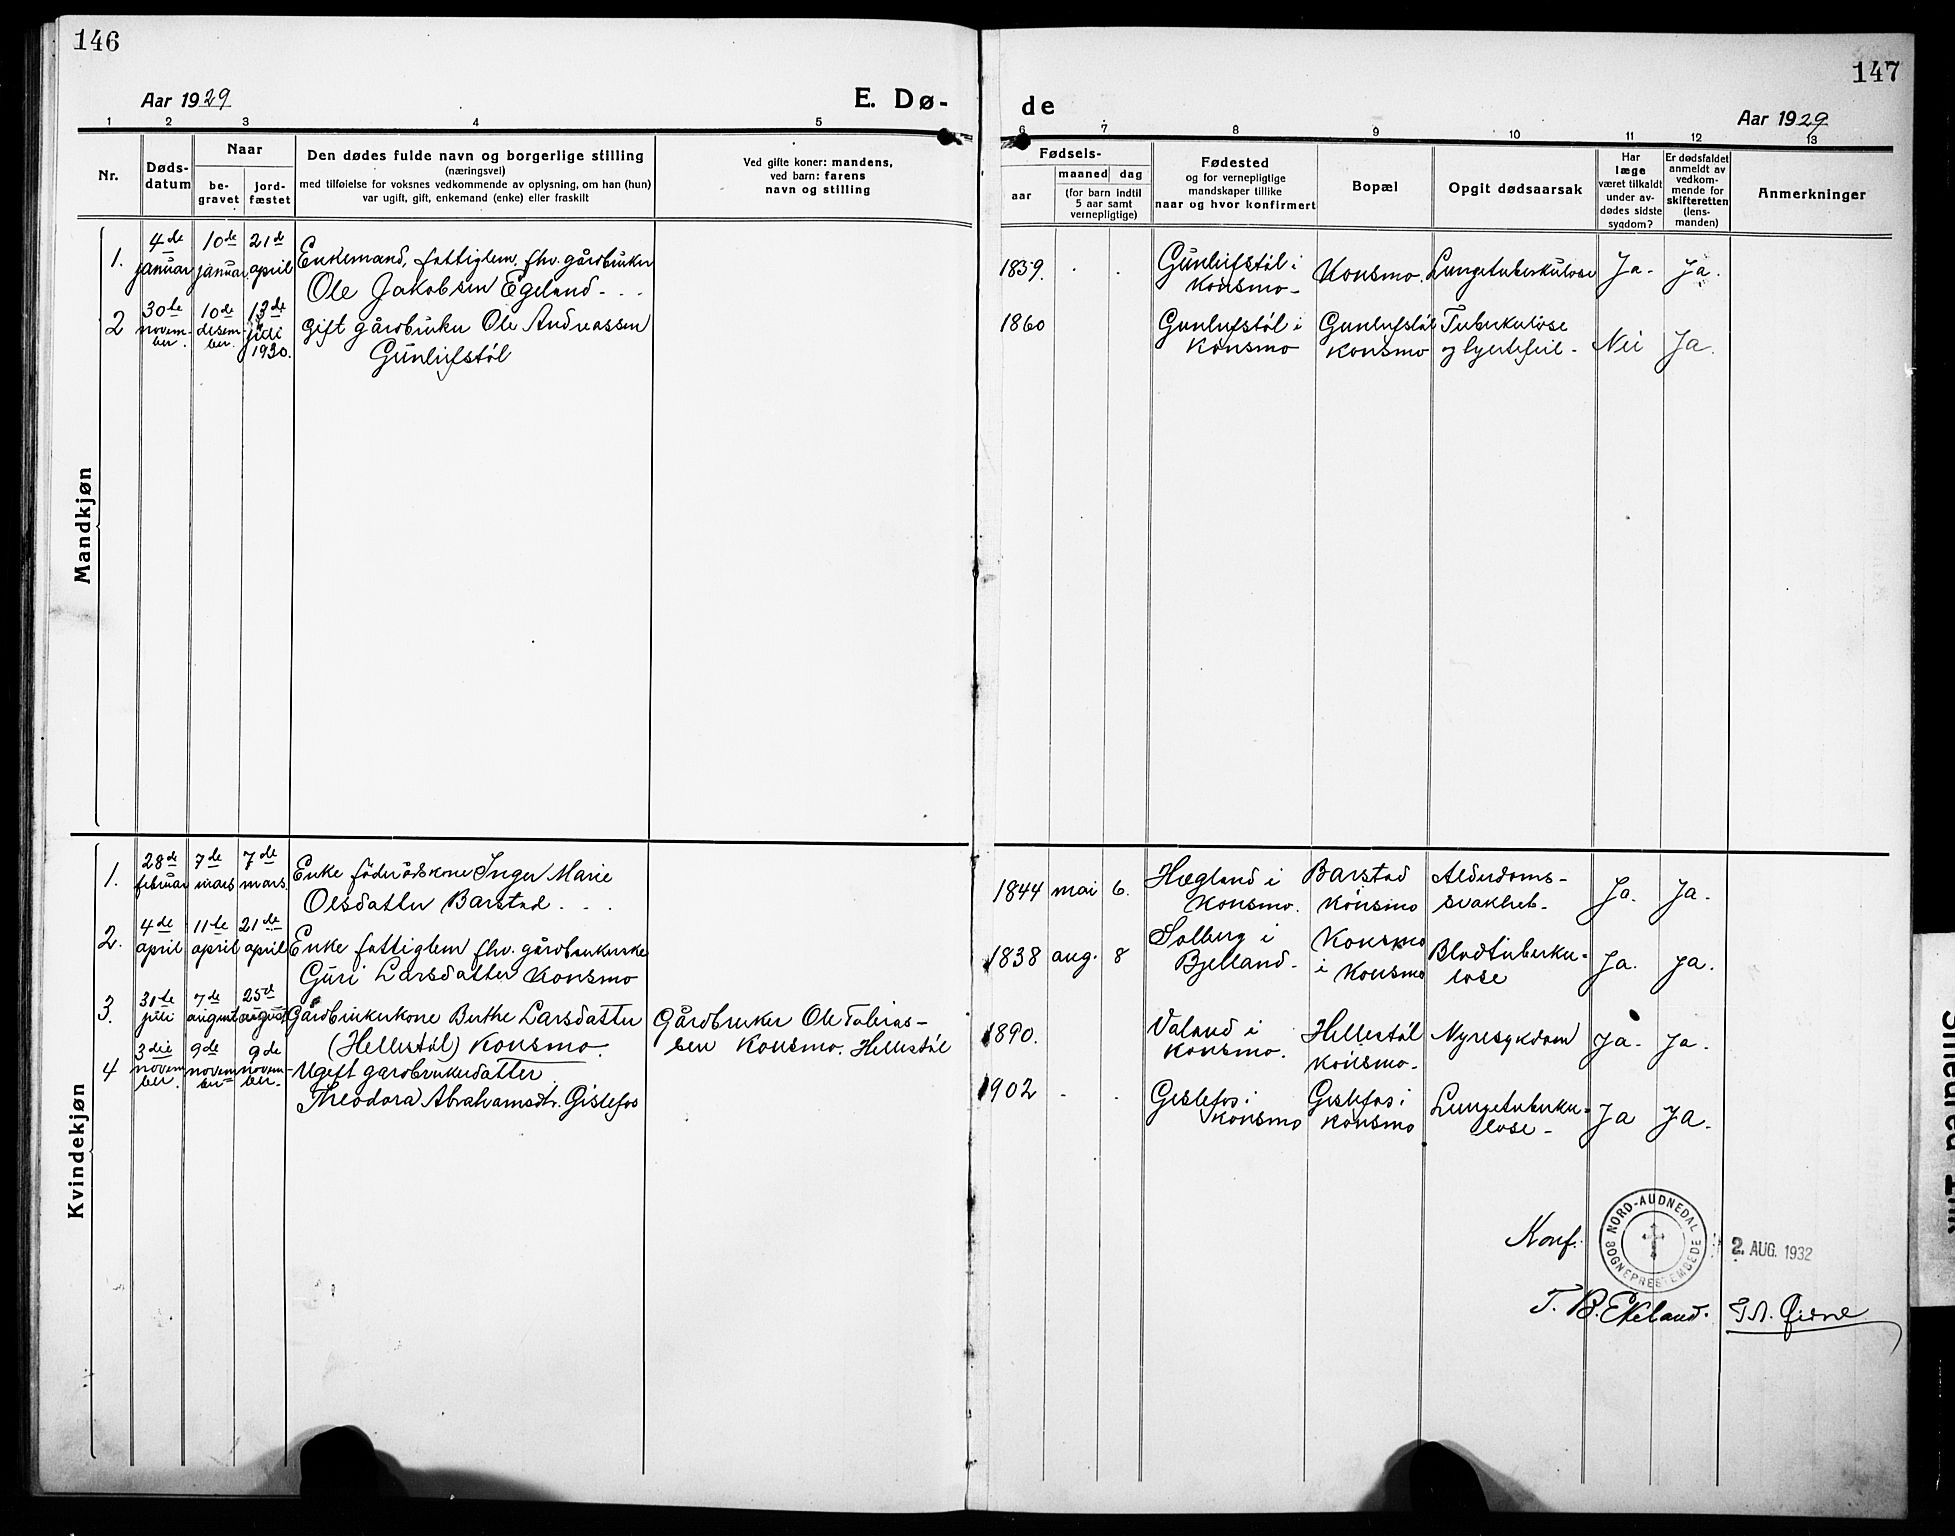 146
Aar 1929
E. Dø-
1 2 3 4 5
Nr.
Døds-
datum
Naar
be-
gravet
jord-
fæstet
Den dødes fulde navn og borgerlige stilling
(næringsvei)
med tilføielse for voksnes vedkommende av oplysning, om han (hun)
var ugift, gift, enkemand (enke) eller fraskilt
Ved gifte koner: mandens,
ved barn: farens
navn og stilling
Mandkjøn
1.
4de
januar
10de
januar
21de
april
Enkemand, fattiglem, fhv. gårdbruker
Ole Jakobsen Egeland
2
30te
novem-
ber.
10de
desem-
ber.
13de
juli
1930.
Gift gårdbruker Ole Andreassen
Gunlufstøl
Kvindekjøn
1.
28de
februar
7de
mars
7de
mars
Enke føderådskone Inger Marie
Olsdatter Barstad
2.
4de
april
11te
april
21de
april
Enke fattiglem fhv. gårdbrukerske
Guri Larsdatter Konsmo
3.
31te
juli
7de
august
25de
august
Gårdbrukerkone Berthe Larsdatter
(Hellestøl) Konsmo.
Gårdbruker Ole Tobias-
sen Konsmo. Hellestøl
4
3die
novem
ber.
9de
novem
ber
9de
novem-
ber.
Ugift gardbrukerdatter
Theodora Abrahamsdtr. Gislefos
147
de
Aar 1929
6 7 8 9 10 11 12 13
Fødsels-
aar
maaned dag
(for barn indtil
5 aar samt
vernepligtige)
Fødested
og for vernepligtige
mandskaper tillike
naar og hvor konfirmert
Bopæl
Opgit dødsaarsak
Har
læge
været tilkaldt
under av-
dødes sidste
sygdom?
Er dødsfaldet
anmeldt av
vedkom-
mende for
skifteretten
(lens-
manden)
Anmerkninger
1839.
Gunlufstøl i
Konsmo
Konsmo.
Lungetuberkulose
Ja.
Ja.
1860
Gunlufstøl i
Konsmo
Gunlufstøl
Konsmo
Tuberkulose
og hjertefeil
Nei
Ja.
1844 mai 6.
Hægland i
Konsmo.
Barstad
Konsmo
Alderdoms-
svakhet
Ja.
Ja.
1838 aug. 8
Solberg i
Bjelland.
Konsmo
i Konsmo
Blodtuberku-
lose
Ja.
Ja.
1890.
Valand i
Konsmo.
Hellestøl
Konsmo
Nyresykdom
Ja.
Ja.
1902
Gislefos i
Konsmo
Gislefos i
Konsmo
Lungetuberku-
lose
Ja
Ja.
Konf.
NORD-AUDNEDAL
SOGNEPRESTEMBEDE
2. AUG. 1932
T. B. Ekeland.